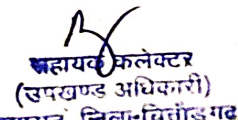 सहायक कलेक्टर
(उपखण्ड अधिकारी)
जिला-चित्तौडगढ